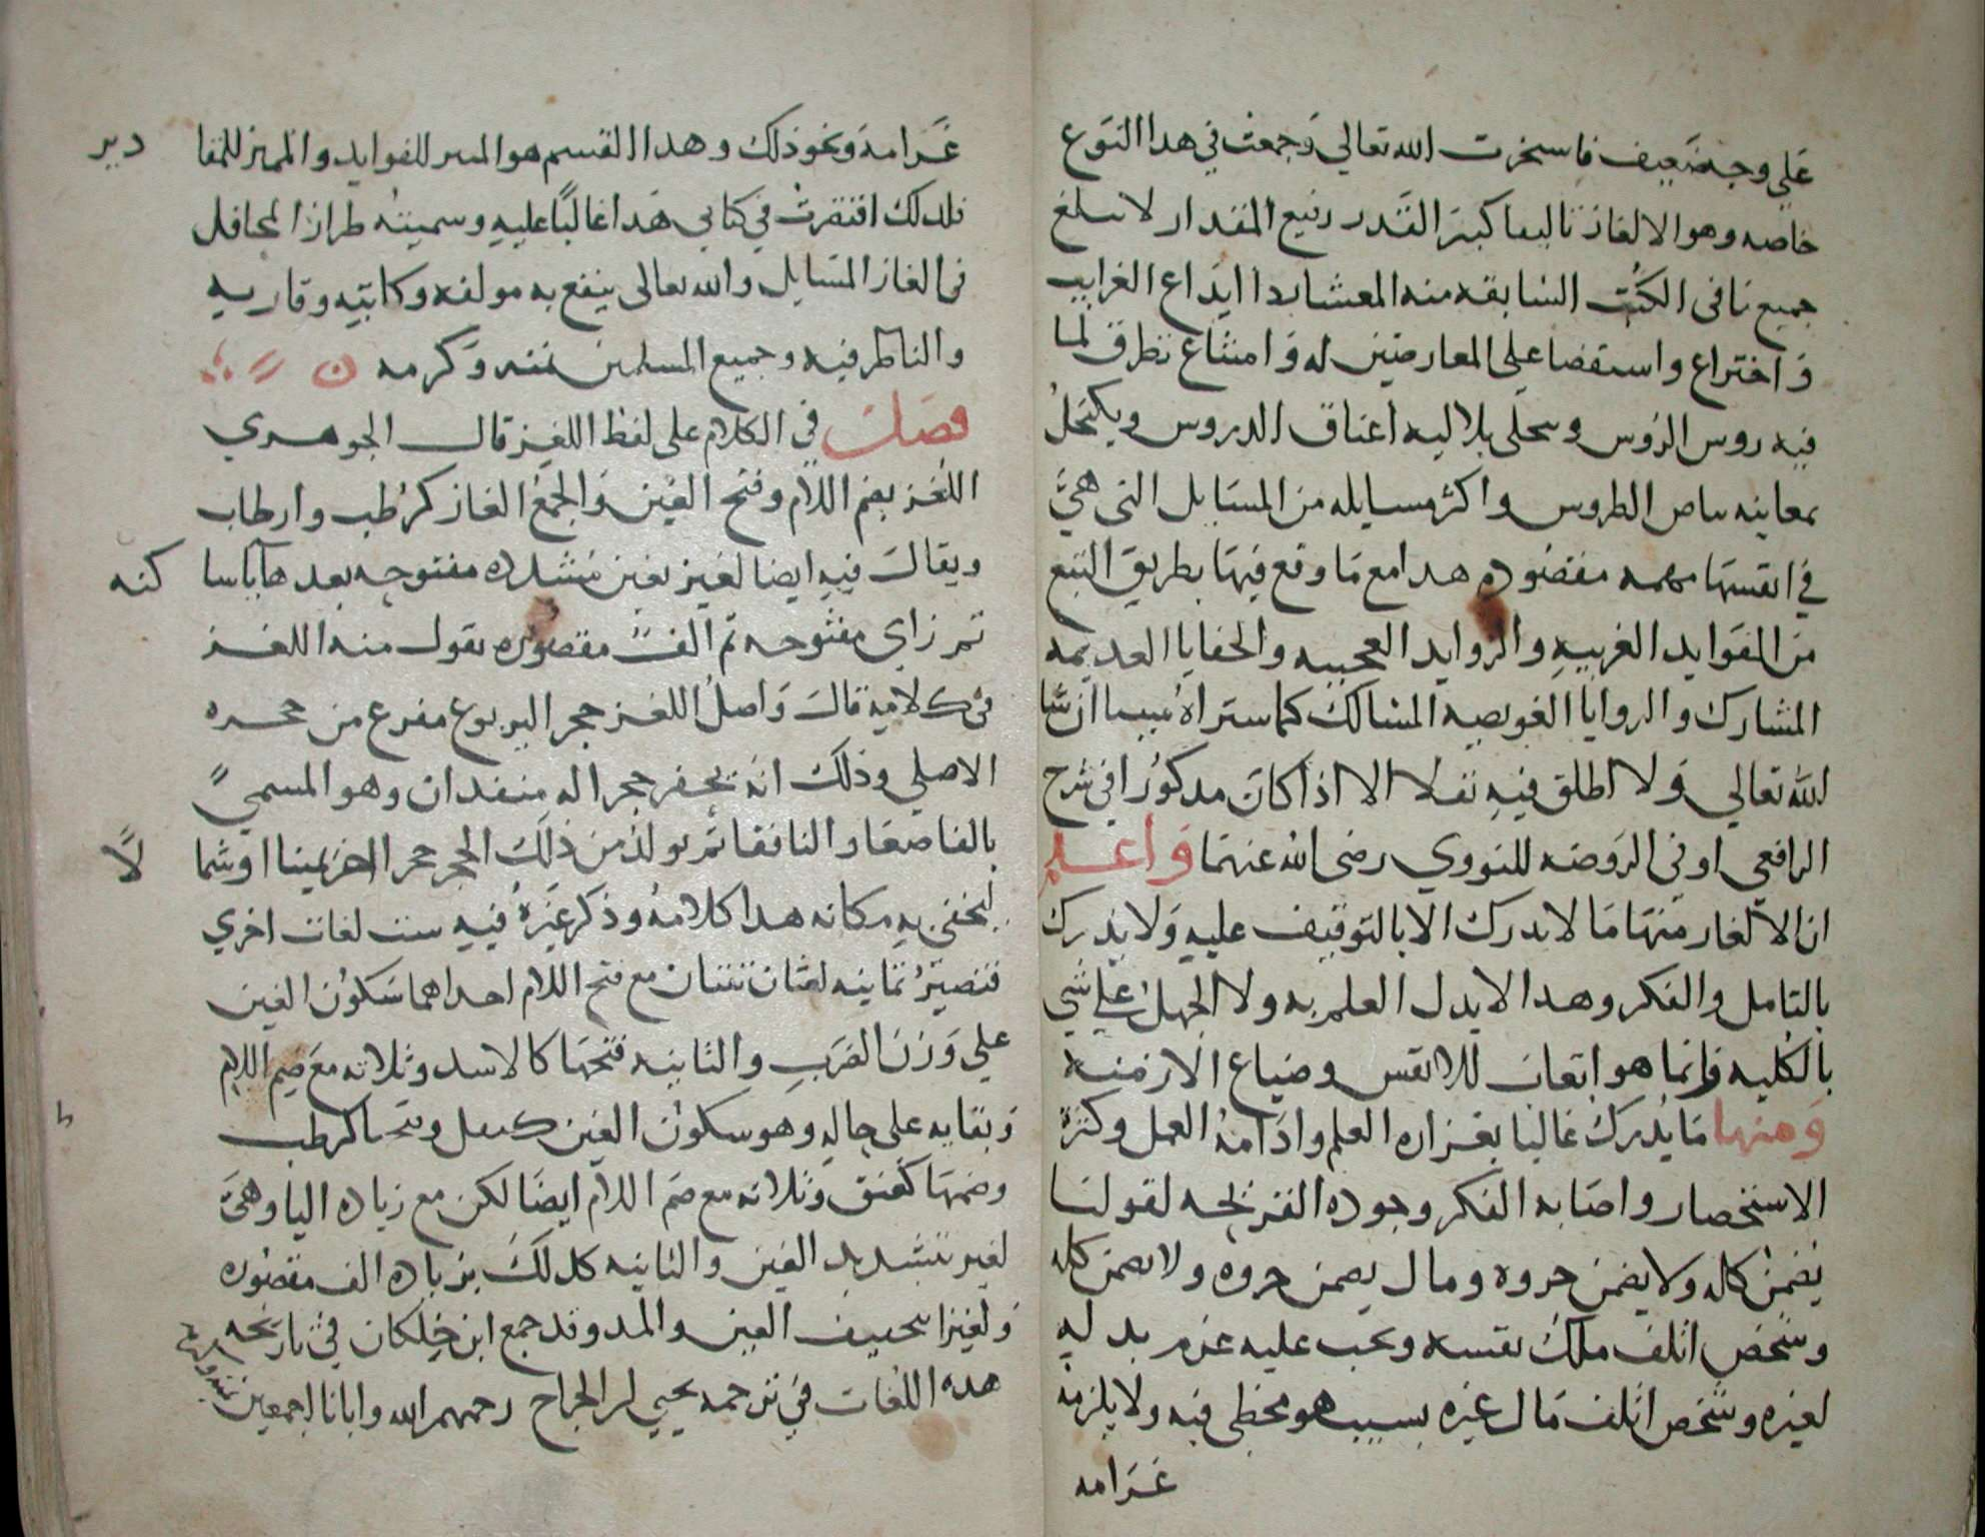 علي وجه ضعيف فاستخرت الله تعالي وجمعت في هذا النوع
خاصه وهو الالغاز تاليفا كبير القدر رفيع المقدار لا يبلغ
جميع ما في الكتب السابقه منه المعشار ابداع الغرايب
واختراع واستقصا علي المعارضين له وامتناع تطرق لما
فيه روس الروس وتحلي بلاليه اعناق الدروس ويكتحل
بمعاينه بياض الطروس واكثر مسايله من المسايل التي هي
في انفسها مهمه مقصوده هدا مع ما وقع فيها بطريق التبع
من الفوايد الغريبه والزوايد العجيبه والخفايا العديمه
المشارك والزوايا العويصه المسالك كما ستراه مبينا ان شا
الله تعالي ولا اطلق فيه نقلا الا اذا كان مدكورا في شرح
الرافعي او في الروضه للنووي رضي الله عنهما واعلم
ان الالغاز منها ما لا يدرك الا بالتوقيف عليه ولا يدرك
بالتامل والفكر وهدا لا يدل العلم به ولا الجهل علي شي
بالكليه وانما هو اتعاب للانفس وضياع الازمنه
ومنها ما يدرك غالبا بغزاره العلم وادامه العمل وكثرة
الاستحضار واصابه الفكر وجوده القريحه لقولنا
يضمن كله ولا يضمن جزوه ومال يضمن جزوه ولا يضمن كله
وشخص اتلف ملك نفسه وتجب عليه غرم بدله
لغيره وشخص اتلف مال غيره بسبب هو مخطي فيه ولا يلزمه
غرامه
غرامه ونحو ذلك وهدا القسم هو المثير للفوايد والمميز للمقا دير
فلدلك اقتصرت في كتابي هدا غالبا عليه وسميته طراز المحافل
في الغاز المسايل والله تعالي ينفع به مولفه وكاتبه وقاريه
والناظر فيه وجميع المسلمين بمنه وكرمه
فصل في الكلام علي لفظ اللغز قال الجوهري
اللغز بضم اللام وفتح الغين والجمع الغاز كرطب وارطاب
ويقال فيه ايضا لغيز بغين مشدده مفتوحه بعدها يا سا كنه
ثم زاي مفتوحه ثم الف مقصوره يقول منه اللغز
في كلامه قال واصل اللغز حجر اليربوع مفرع من حجره
الاصلي وذلك انه يحفر حجرا له منفدان وهو المسمي
بالقاصعا والنافقا ثم يولد من ذلك الحجر حجر اخر يمينا او شما لا
ليخفي به مكانه هدا كلامه وذكر غيره فيه ست لغات اخري
فتصير ثمانيه لغتان ثنتان مع فتح اللام احداهما سكون الغين
علي وزن الضرب والثانيه فتحها كالاسد وثلاثه مع ضم اللام
وبقايه علي حاله وهو سكون الغين كقفل وفتحها كرطب
وضمها كعنق وثلاثه مع ضم اللام ايضا لكن مع زياده اليا وهي
لغيز بتشديد الغين والثانيه كدلك بزياده الف مقصوره
ولغيزا بتخفيف الغين والمد وقد جمع ابن خلكان في تاريخه
هده اللغات في ترجمه يحيي بن الجراح رحمهم الله وايانا اجمعين